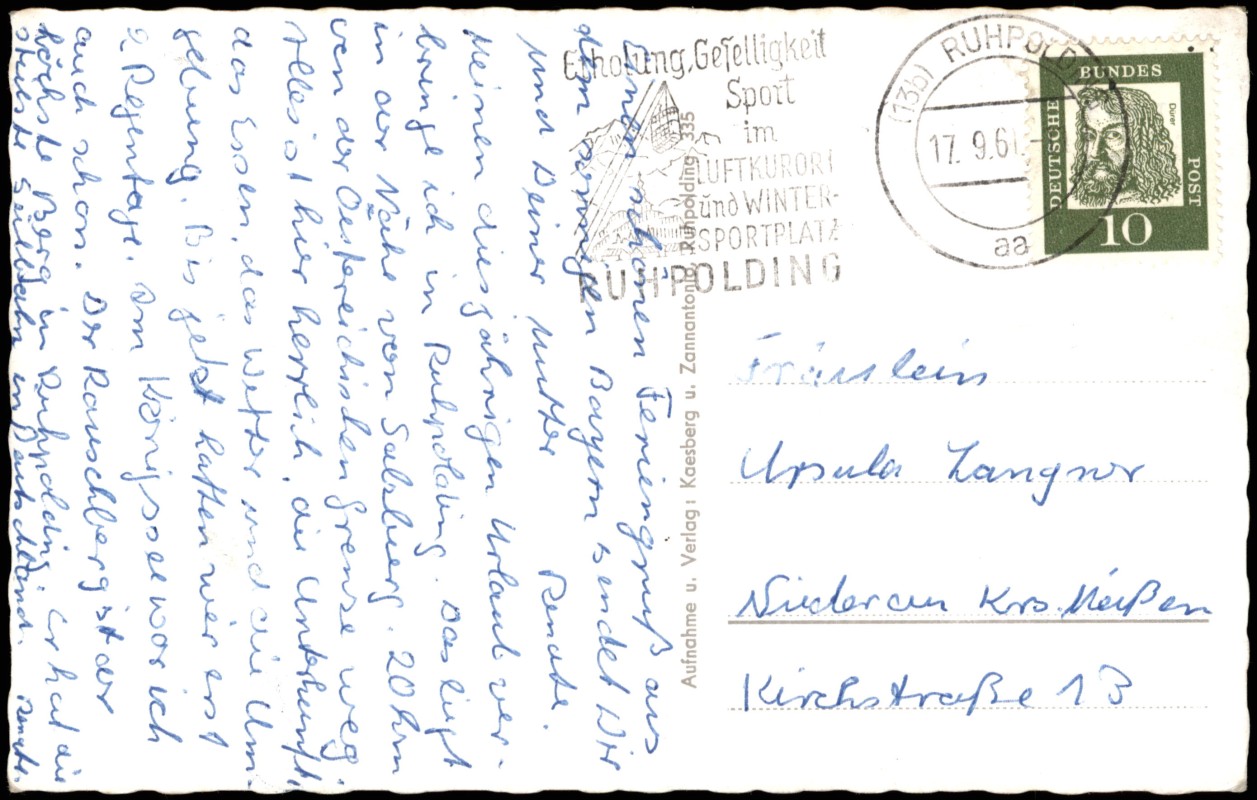 Einen schönen Feriengruß aus
dem sonnigen Bayern sendet Dir
und Deiner Mutter Renate.
Meinen diesjährigen Urlaub ver-
bringe ich in Ruhpolding. Das liegt
in der Nähe von Salzburg. 20 km
von der Oestereichischen Grenze weg.
Alles ist hier herrlich, die Unterkunft,
das Essen, das Wetter und die Um-
gebung. Bis jetzt hatten wir erst
2 Regentage. Am Königssee war ich
auch schon. Der Rauschberg ist der
höchste Berg in Ruhpolding. Er hat die
steilste Seilbahn in Deutschland. Renate.
Erholung, Geselligkeit
Sport
im
LUFTKURORT
und WINTER-
SPORTPLATZ
RUHPOLDING
(13b) RUHPOLDING
17. 9.61.
aa
DEUTSCHE
BUNDES
POST
Dürer
10
Aufnahme u. Verlag: Kaesberg u. Zannantonio, Ruhpolding 335
Fräulein
Ursula Langner
Niederau Krs. Meißen
Kirchstraße 13